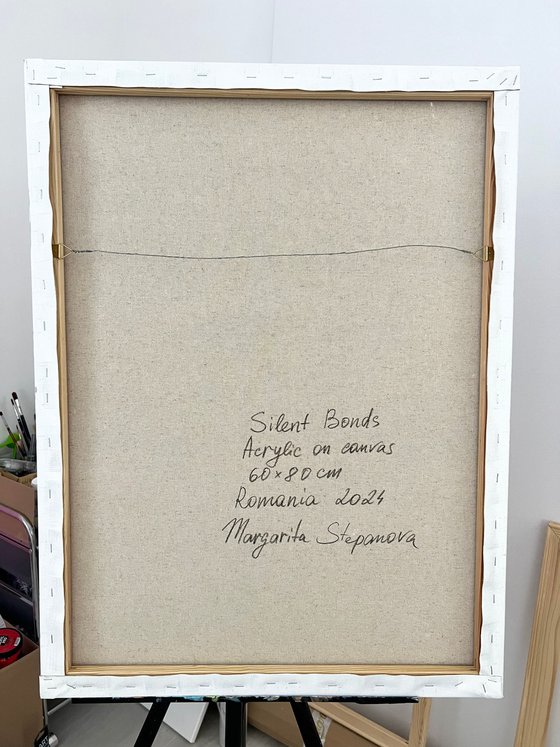 Silent Bonds
Acrylic on canvas
60×80 cm
Romania 2024
Margarita Stepanova